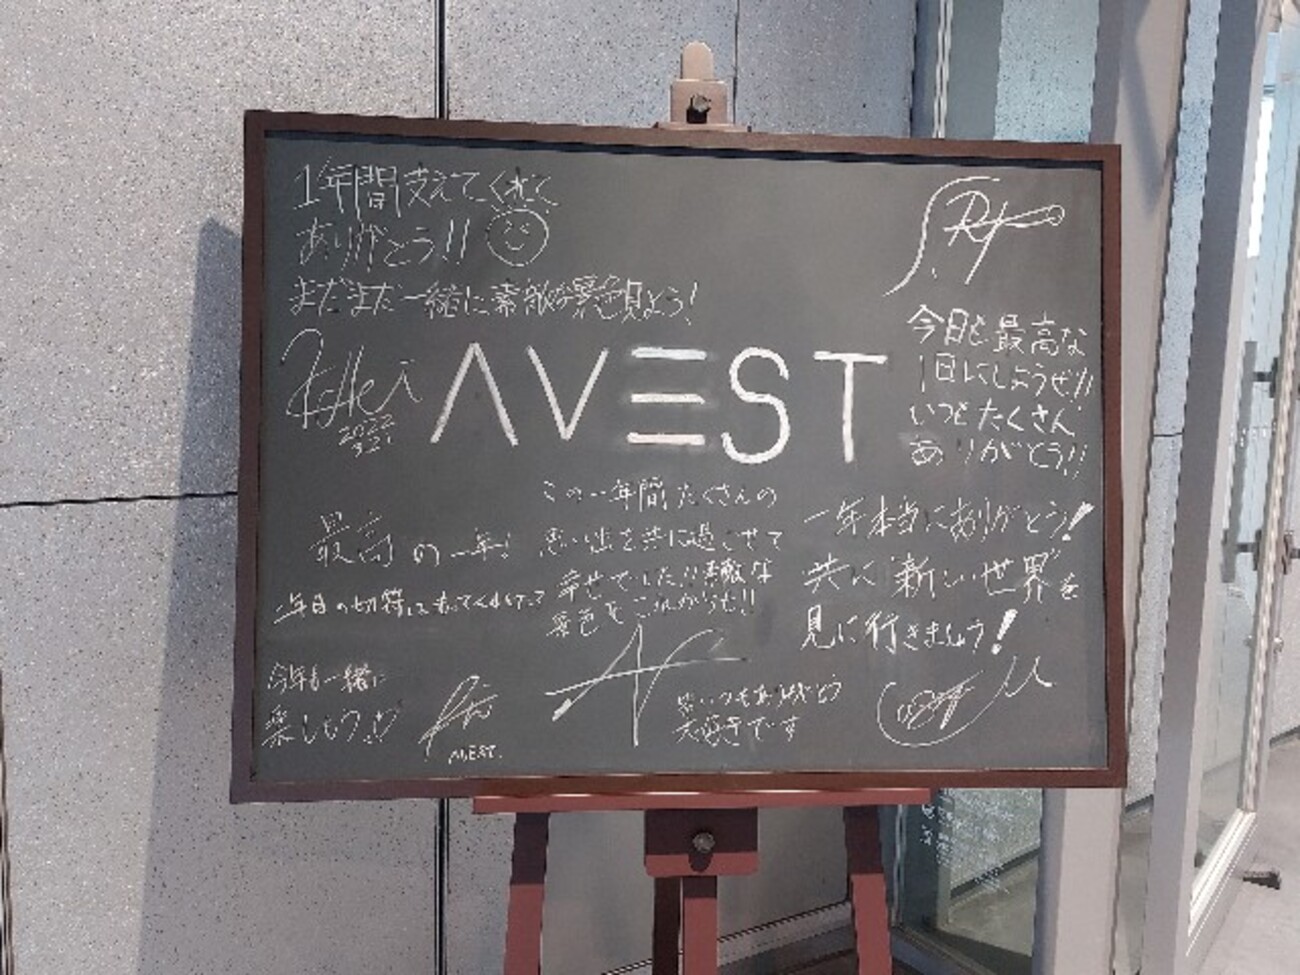 1年間支えてくれて
ありがとう!!
まだまだ一緒に素敵な景色見よう!
2022
3.21
AVEST
今日も最高な
1日にしようぜ!!
いつもたくさん
ありがとう!!
最高の一年!
年目の切符
今年も一緒に
楽しもう!!
AVEST.
この一年間たくさんの
思い出を共に過ごせて
幸せでした!!素敵な
景色をこれからも!!
いつもありがとう
大好きです
一年本当にありがとう!
共に"新しい世界"を
見に行きましょう!